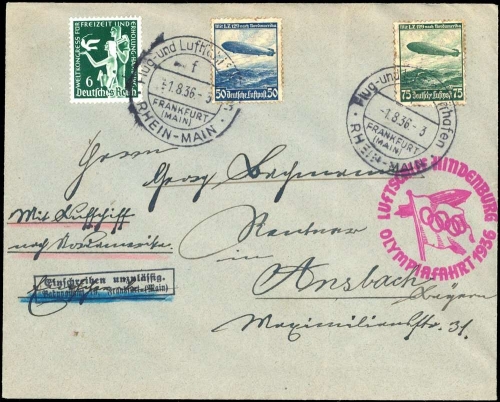 WELTKONGRESS FÜR FREIZEIT UND ERHOLUNG
6
Deutsches Reich
Mit LZ 129 nach Nordamerika
50 Deutsche Luftpost 50
Mit LZ 129 nach Nordamerika
75 Deutsche Luftpost 75
Flug- und Lufts
f
-1.8.36-3
FRANKFURT
(MAIN)
RHEIN-MAIN
Flug- und hafen
-1.8.36-3
FRANKFURT
(MAIN)
RHEIN-MAIN
Herrn
Georg Bachmann
Rentner
in
Ansbach
Bayern
Maximilianstr. 31.
Mit Luftschiff
nach Nordamerika
Einschreiben unzulässig.
Frankfurt (Main)
LUFTSCHIFF HINDENBURG
OLYMPIAFAHRT 1936